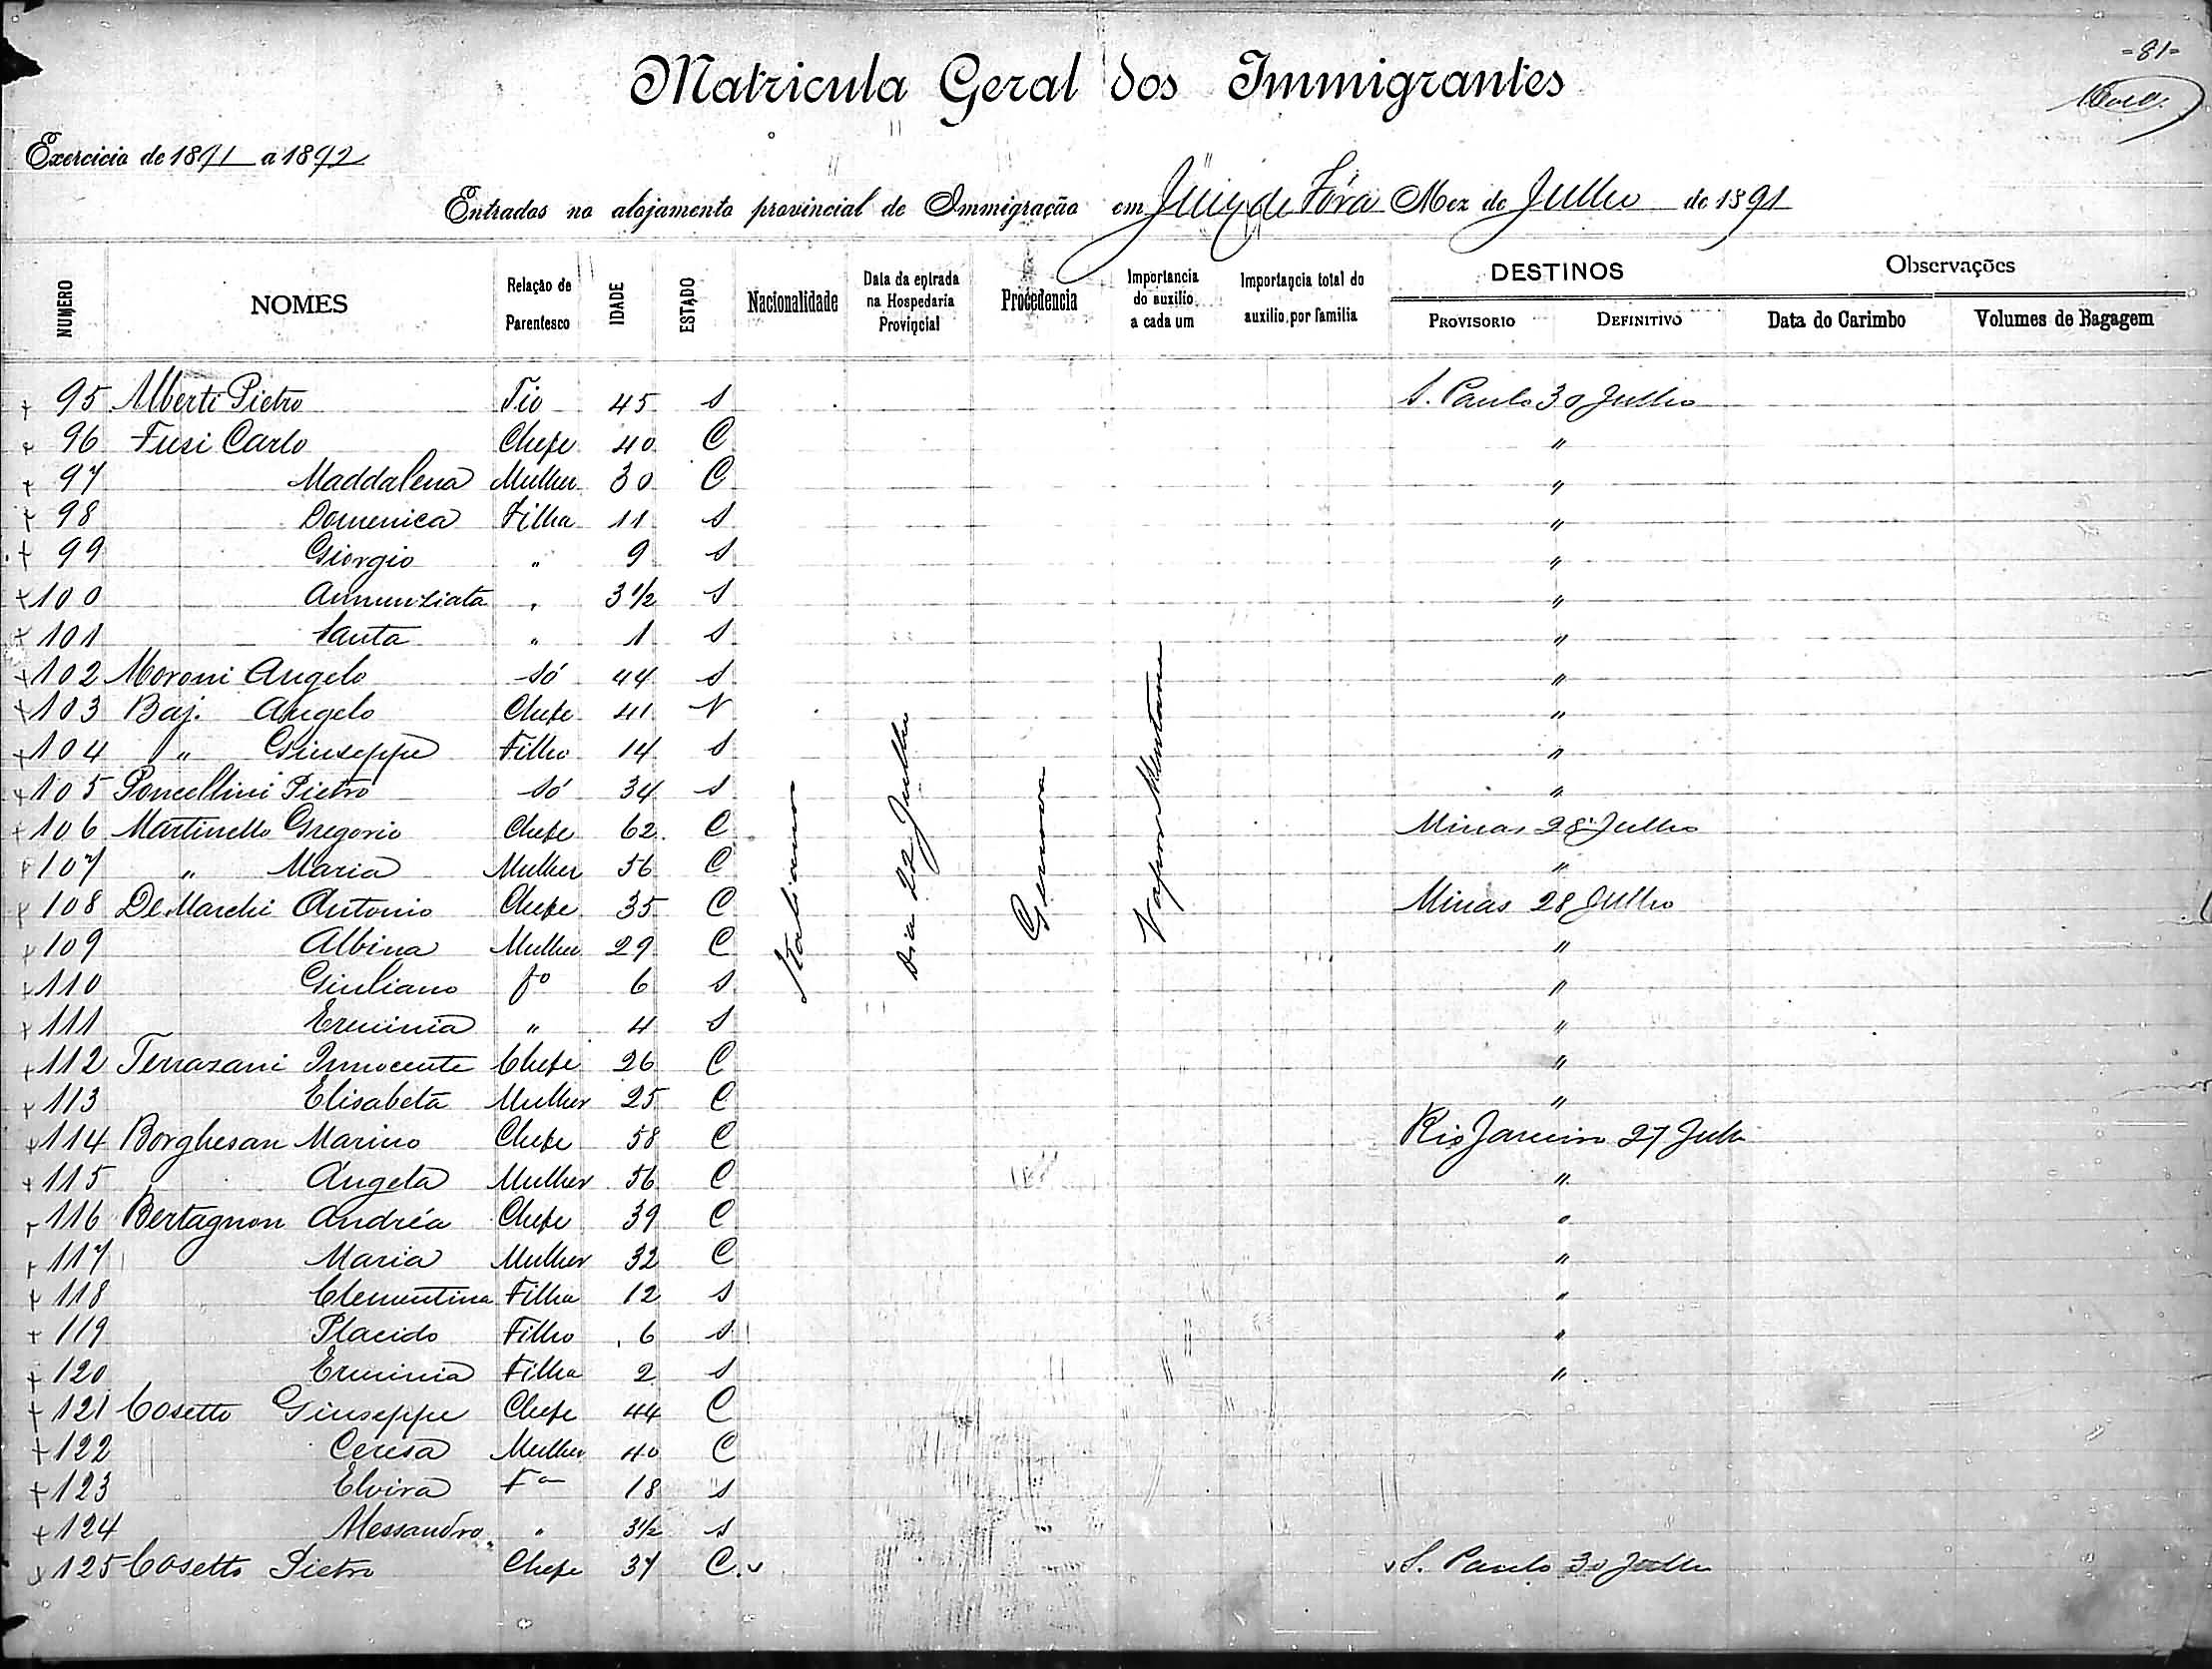 -81-
Matricula Geral dos Immigrantes
Exercicio de 1891 a 1892
Entrados no alojamento provincial de Immigração em Juiz de Fóra Mez de Julho de 1891
NUMERO NOMES Relação de Parentesco IDADE ESTADO Nacionalidade Data da entrada na Hospedaria Provincial Procedencia Importancia do auxilio a cada um Importancia total do auxilio por familia DESTINOS PROVISORIO DEFINITIVO Observações Data do Carimbo Volumes de Bagagem
95 Alberti Pietro Tio 45 S S. Paulo 30 Julho
96 Fusi Carlo Chefe 40 C "
97 Maddalena Mulher 30 C "
98 Domenica Filha 11 S "
99 Giorgio " 9 S "
100 Annunziata " 3 1/2 S "
101 Santa " 1 S "
102 Moroni Angelo Só 44 S "
103 Baj. Angelo Chefe 41 V "
104 " Giuseppe Filho 14 S "
105 Poncellini Pietro Só 34 S "
106 Martinello Gregorio Chefe 62 C Minas 28 Julho
107 " Maria Mulher 56 C "
108 De Marchi Antonio Chefe 35 C Minas 28 Julho
109 Albina Mulher 29 C "
110 Giuliano fo 6 S "
111 Erminia " 4 S "
112 Terrazani Innocente Chefe 26 C "
113 Elisabeta Mulher 25 C "
114 Borghesan Marino Chefe 58 C Rio Janeiro 27 Julh
115 Angela Mulher 56 C "
116 Bertagnon Andréa Chefe 39 C "
117 Maria Mulher 32 C "
118 Clementina Filha 12 S "
119 Placido Filho 6 S "
120 Erminia Filha 2 S "
121 Cosetto Giuseppe Chefe 44 C
122 Ceresa Mulher 40 C
123 Elvira Fa 18 S
124 Alessandro " 3 1/2 S
125 Cosetto Pietro Chefe 37 C. S. Paulo 30 Julho
Italianos
Dia 22 Julho
Genova
Vapor